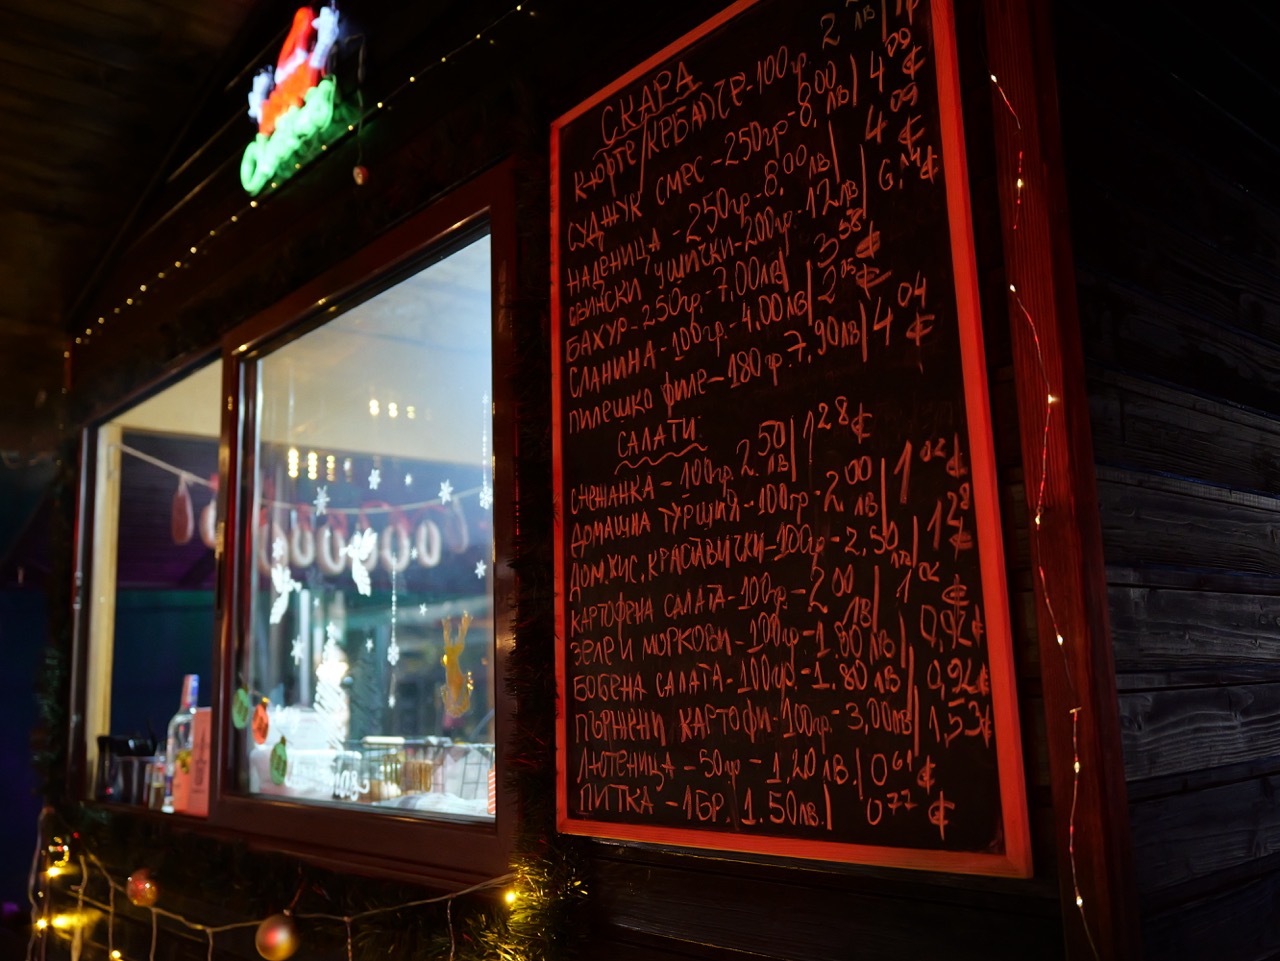 СКАРА
КЮФТЕ/КЕБАПЧЕ-100гр. 2 лв|
СУДЖУК СМЕС-250гр-8,00лв| 4 09 €
НАДЕНИЦА-250гр-8,00лв| 4 09 €
СВИНСКИ УШИЧКИ-200гр-12лв| 6,14 €
БАХУР-250гр-7,00лв| 3 58 €
СЛАНИНА-100гр.-4,00лв| 2 05 €
ПИЛЕШКО ФИЛЕ-180гр.7,90лв| 4 04 €
САЛАТИ
СНЕЖАНКА-100гр. 2,50 лв| 1 28 €
ДОМАШНА ТУРШИЯ-100гр-2,00 лв.| 1 02 €
ДОМ.КИС.КРАСТАВИЧКИ-100гр-2,50 лв| 1 28 €
КАРТОФЕНА САЛАТА-100гр.-2 00 лв| 1 02 €
ЗЕЛЕ И МОРКОВИ-100гр-1.80 лв| 0,92 €
БОБЕНА САЛАТА-100гр.-1.80 лв| 0,92 €
ПЪРЖЕНИ КАРТОФИ-100гр.-3,00лв| 1,53 €
ЛЮТЕНИЦА-50гр-1,20 лв.| 0 61 €
ПИТКА-1БР. 1.50лв.| 0 77 €